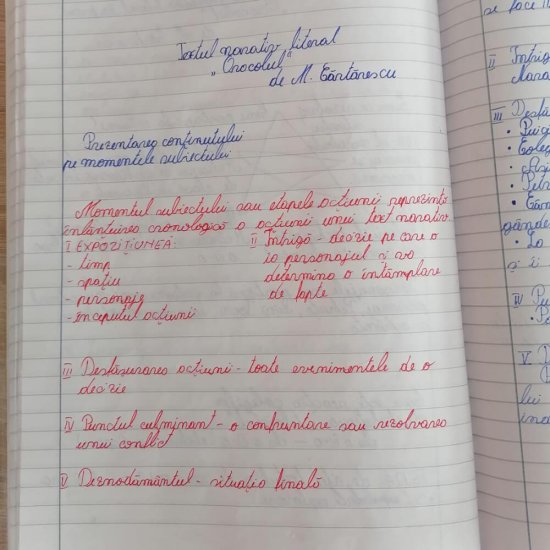 Textul narativ literal
„Orocolul"
de M. Cărtărescu
Prezentarea conținutului
pe momentele subiectului
Momentul subiectului sau etapele acțiunii reprezintă
înlănțuirea cronologică a acțiunii unui text narativ.
I EXPOZIȚIUNEA:
- timp
- spațiu
- personaje
- începutul acțiunii
II Intrigă - decizie pe care o
ia personajul și va
determina o întâmplare
de fapte
III Desfășurarea acțiunii - toate evenimentele de o
decizie
IV Punctul culminant - o confruntare sau rezolvarea
unui conflict
V Deznodământul - situația finală
se face
II Intrig
III
IV
V.